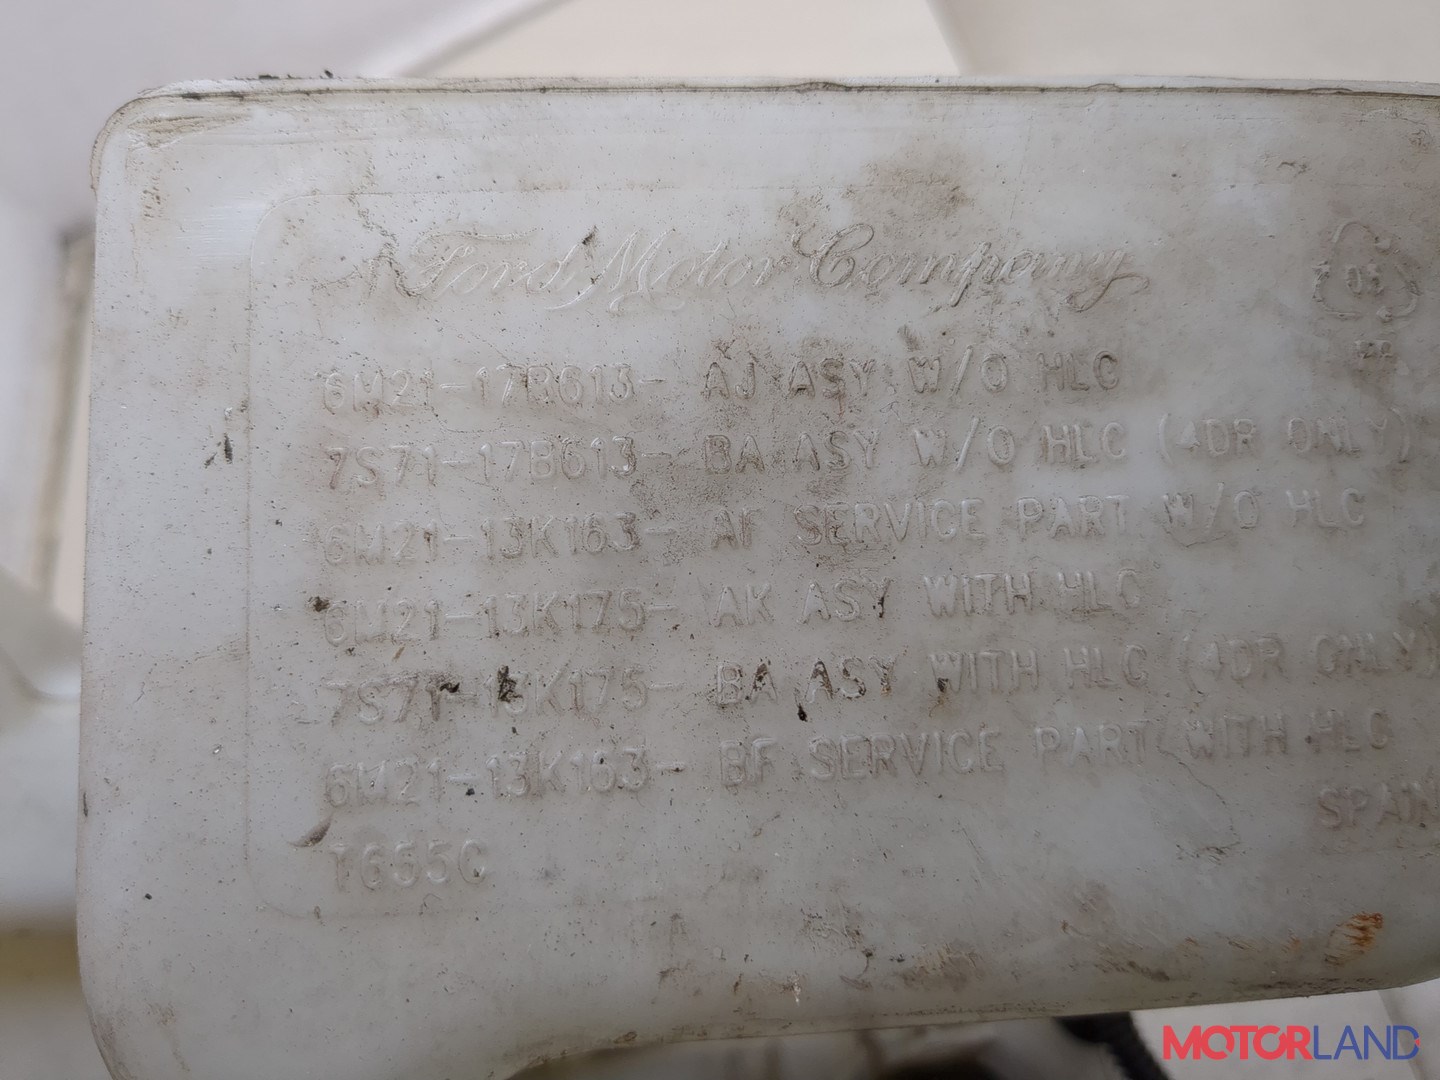 Ford Motor Company
05
6M21-17B613- AJ ASY W/O HLC
7S71-17B613- BA ASY W/O HLC (4DR ONLY)
6M21-13K163- AF SERVICE PART W/O HLC
6M21-13K175- AK ASY WITH HLC
7S71-13K175- BA ASY WITH HLC (4DR ONLY)
6M21-13K163- BF SERVICE PART WITH HLC
SPAIN
T655C
MOTORLAND